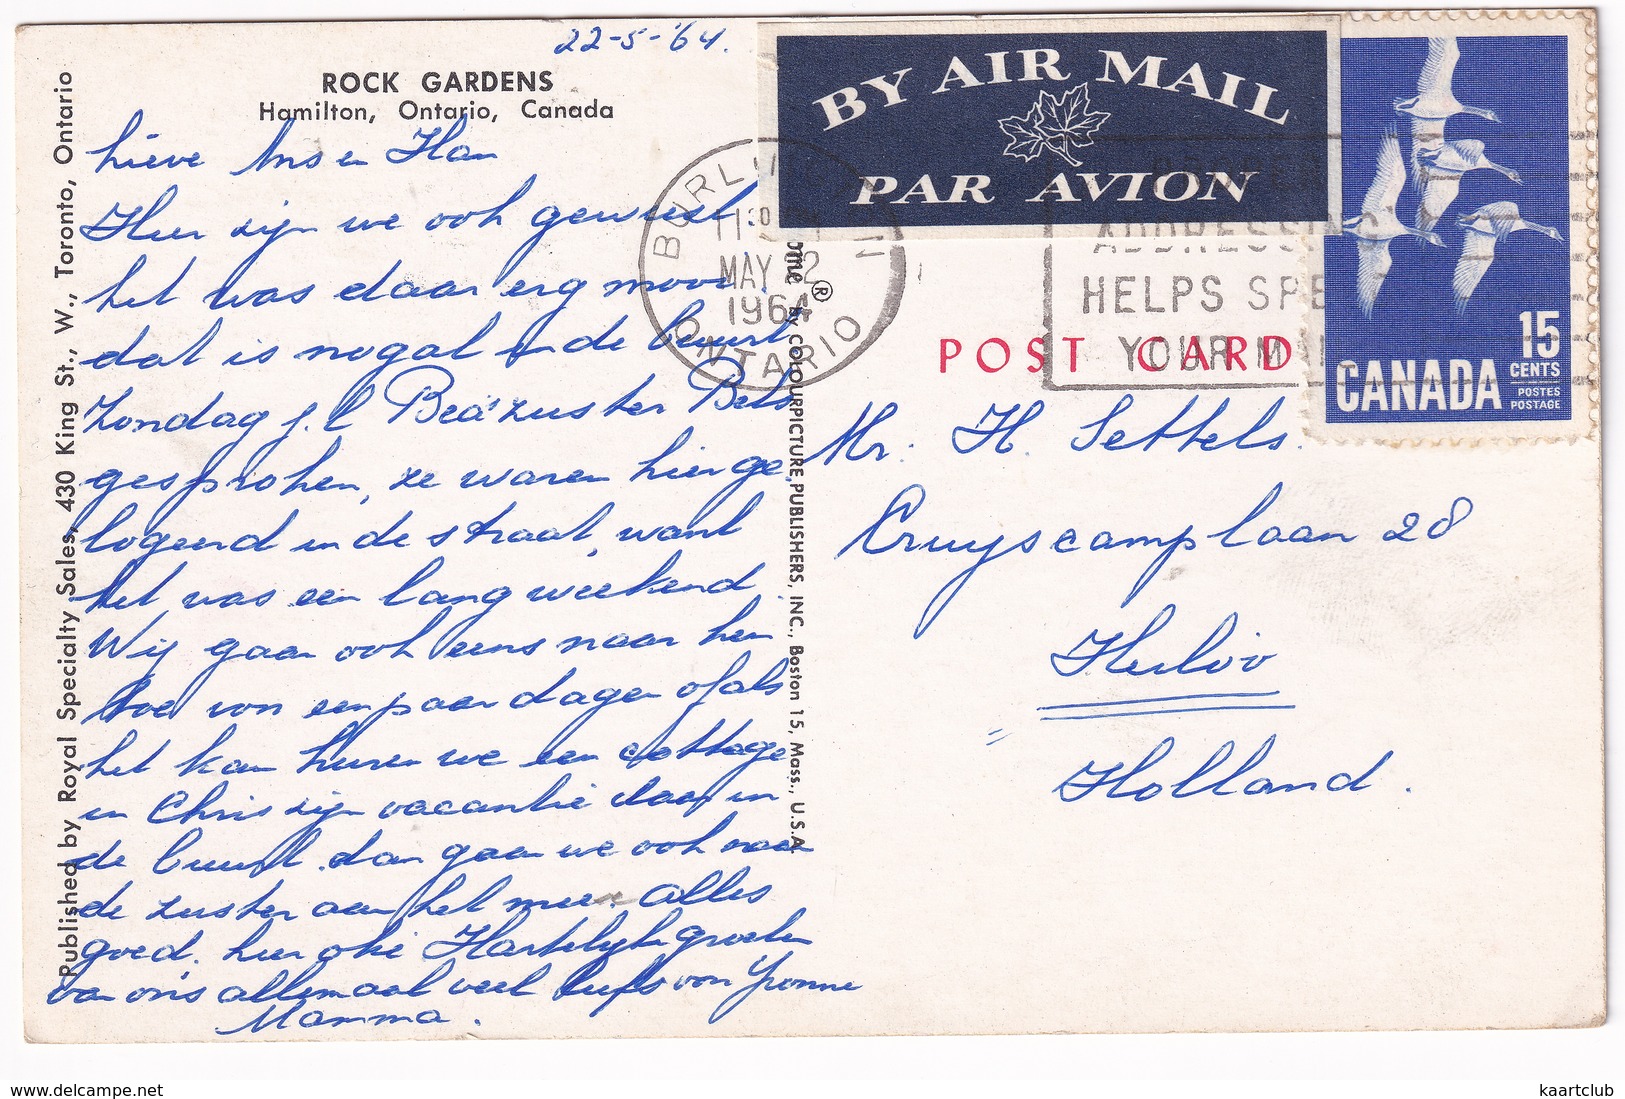 22-5-'64.
ROCK GARDENS
Hamilton, Ontario, Canada
Published by Royal Specialty Sales, 430 King St., W., Toronto, Ontario
Lieve Ans en Han
Hier zijn we ook geweest
het was daar erg mooi
dat is nogal in de buurt
Zondag j.l Bea'zuster Bets
gesproken, ze waren hier ge
logeerd in de straat, want
het was een lang weekend.
Wij gaan ook eens naar hen
toe von een paar dagen of als
het kan huren we een cottage
en Chris zijn vacantie daar in
de buurt. dan gaan we ook naar
de zuster aan het meer. alles
goed. hier oke Hartelijke groeten
van ons allemaal veel liefs von Yvonne
Mamma.
BY COLOURPICTURE, PUBLISHERS, INC., Boston 15, Mass., U.S.A.
BY AIR MAIL
PAR AVION
MAY 22
1964
ONTARIO
ADDRESSING
HELPS SPE
YOUR MAI
POST CARD
15
CENTS
POSTES
POSTAGE
CANADA
Mr. H. Settels.
Cruyscamplaan 28
Heiloo
Holland.
https://www.delcampe.net
kaartclub